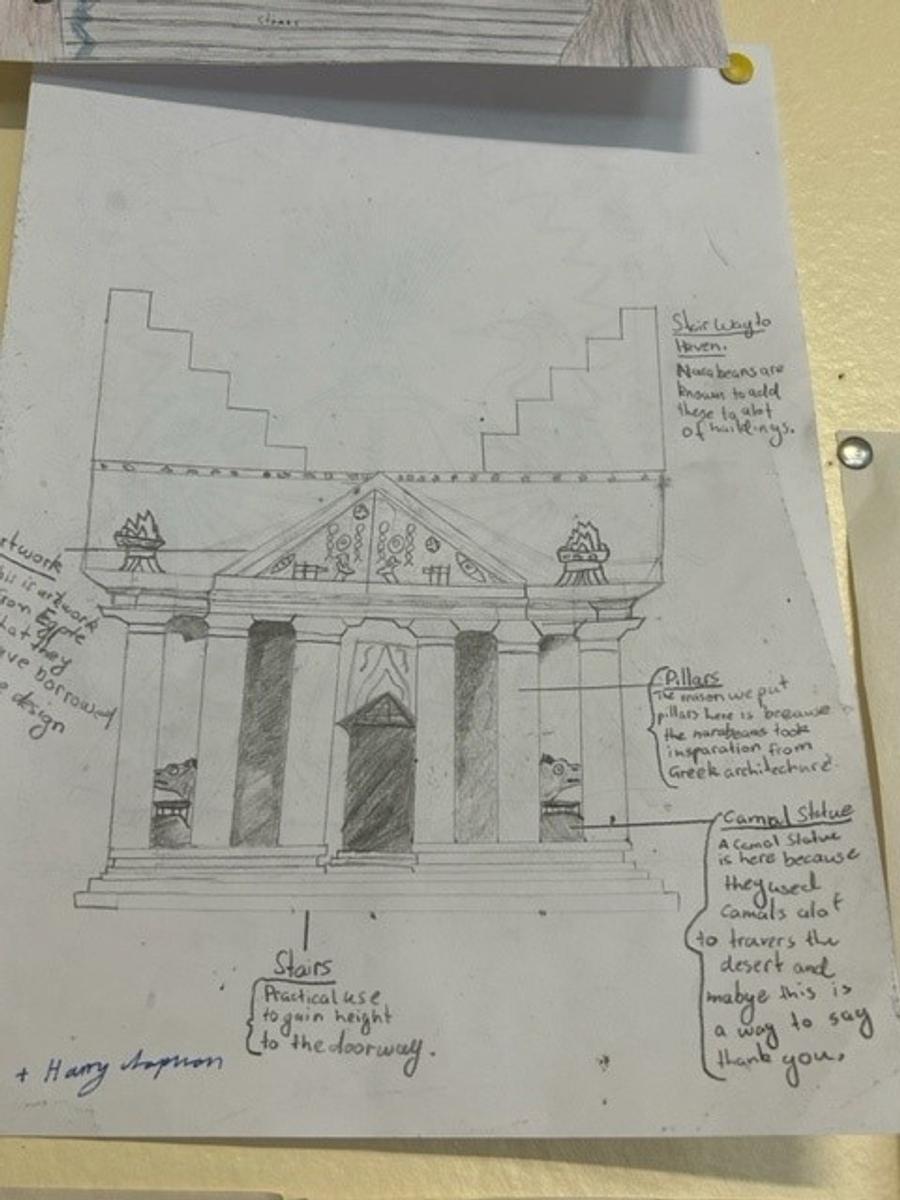 stones
Stair Way to
Haven.
Narabeans are
known to add
these to alot
of buildings.
rtwork
his is artwork
rom Egpte
that they
ave borrowed
e design
Pillars
The reason we put
pillars here is because
the narabeans took
insparation from
Greek architecture.
Camal Statue
A Camal Statue
is here because
they used
Camals alot
to travers the
desert and
mabye this is
a way to say
thank you.
Stairs
Practical use
to gain height
to the doorway.
+ Harry